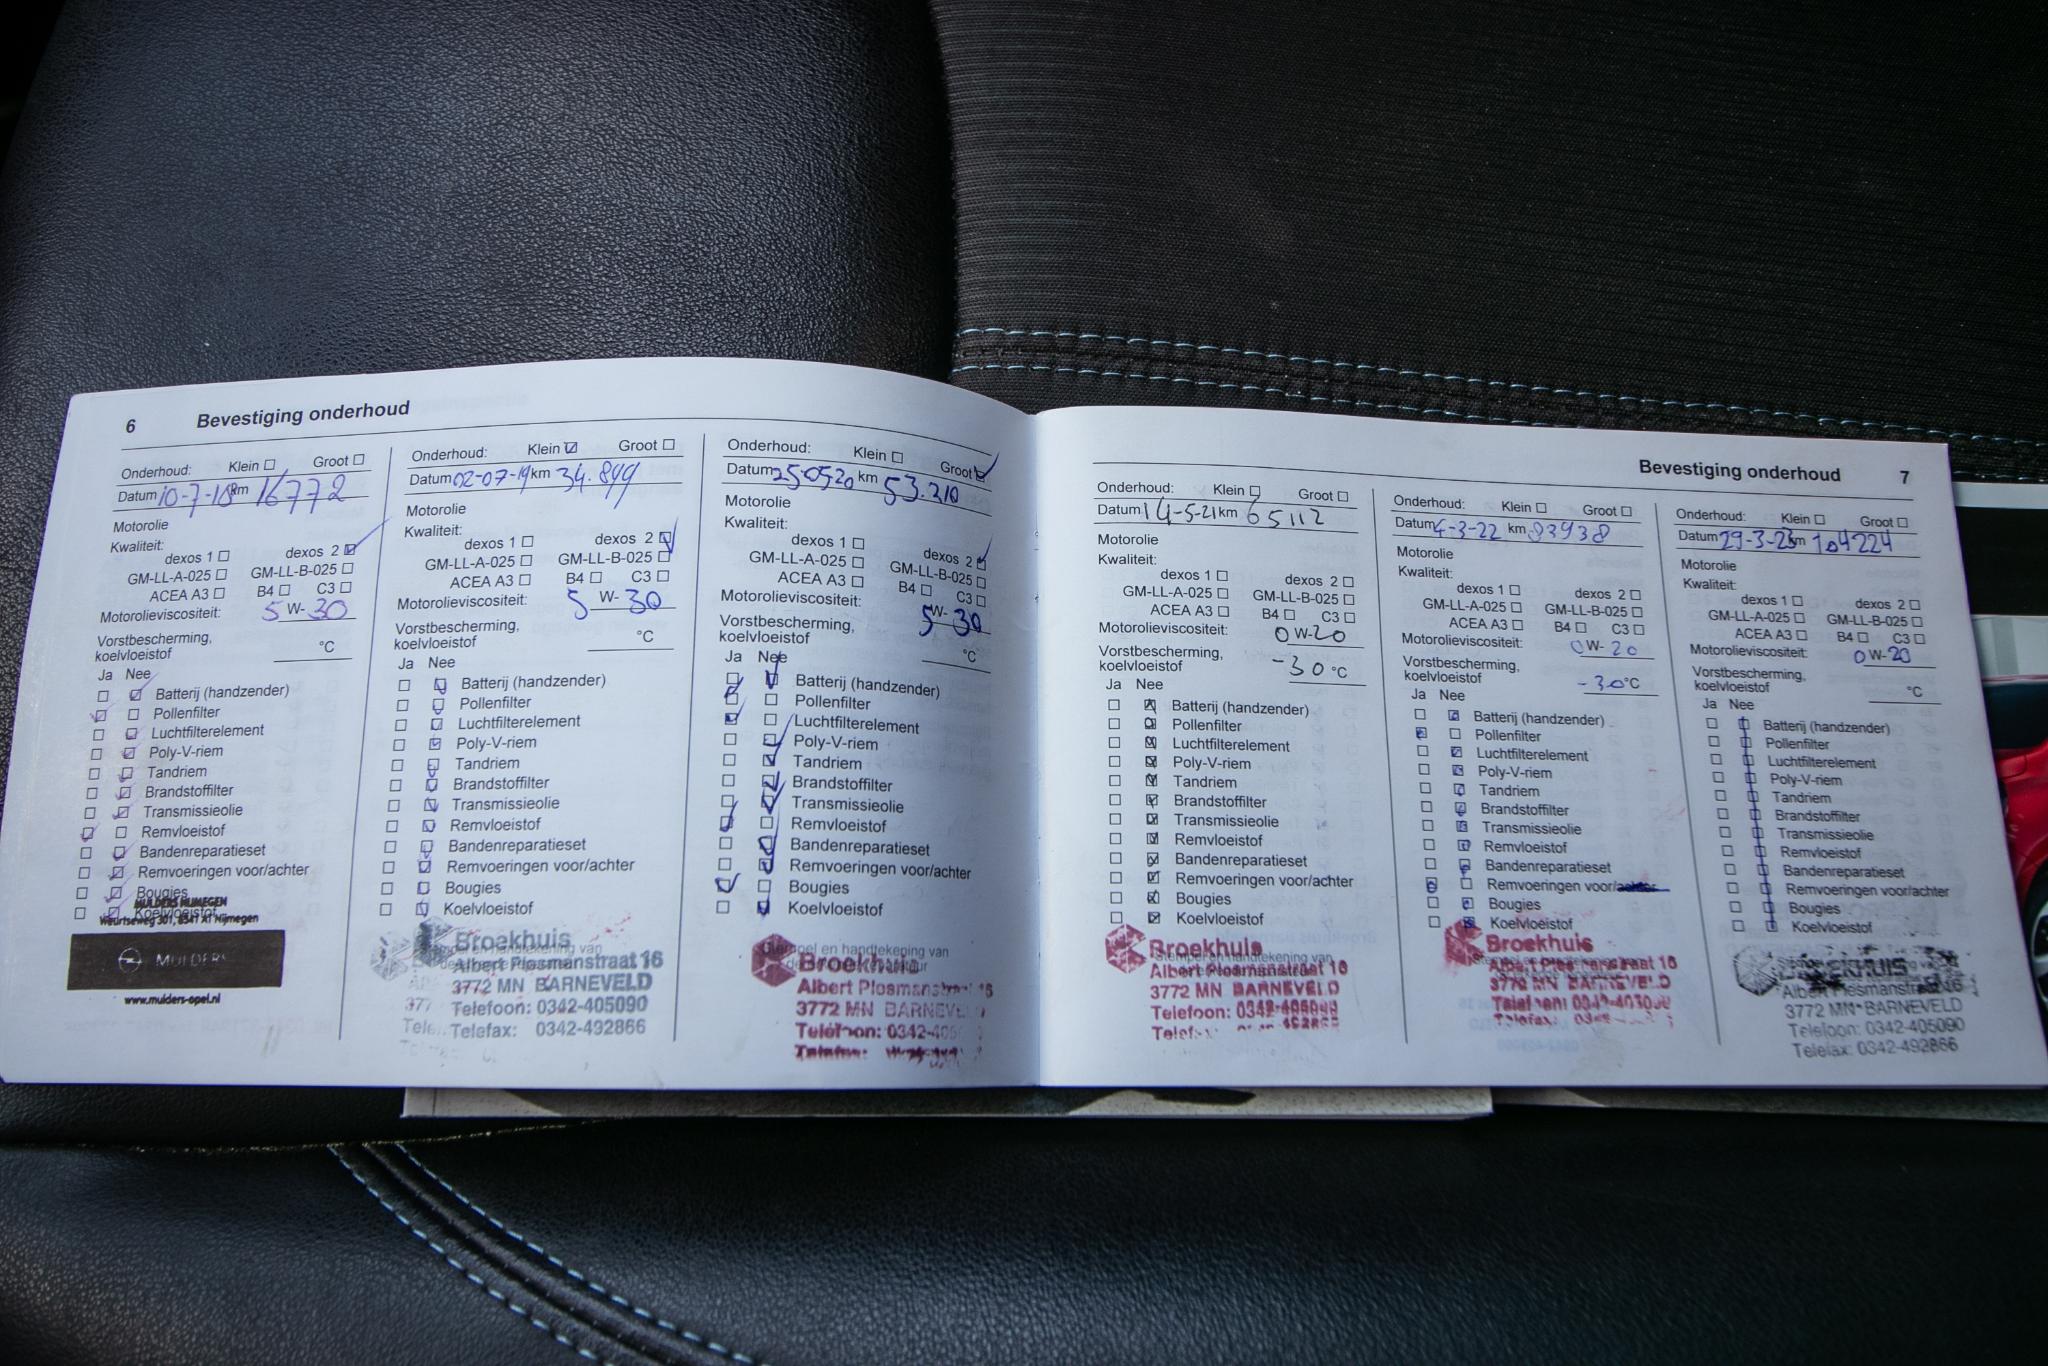 6 Bevestiging onderhoud
Onderhoud: Klein Groot
Datum 10-7-18 km 16772
Motorolie
Kwaliteit:
dexos 1 dexos 2
GM-LL-A-025 GM-LL-B-025
ACEA A3 B4 C3
Motorolieviscositeit: 5 W- 30
Vorstbescherming,
koelvloeistof °C
Ja Nee
Batterij (handzender)
Pollenfilter
Luchtfilterelement
Poly-V-riem
Tandriem
Brandstoffilter
Transmissieolie
Remvloeistof
Bandenreparatieset
Remvoeringen voor/achter
Bougies
Koelvloeistof
MULDERS NIJMEGEN
Weurtseweg 301, 6541 AT Nijmegen
MULDERS
www.mulders-opel.nl
Onderhoud: Klein Groot
Datum 02-07-19 km 34.844
Motorolie
Kwaliteit:
dexos 1 dexos 2
GM-LL-A-025 GM-LL-B-025
ACEA A3 B4 C3
Motorolieviscositeit: 5 W- 30
Vorstbescherming,
koelvloeistof °C
Ja Nee
Batterij (handzender)
Pollenfilter
Luchtfilterelement
Poly-V-riem
Tandriem
Brandstoffilter
Transmissieolie
Remvloeistof
Bandenreparatieset
Remvoeringen voor/achter
Bougies
Koelvloeistof
Broekhuis
Albert Plesmanstraat 16
3772 MN BARNEVELD
Telefoon: 0342-405090
Telefax: 0342-492866
Onderhoud: Klein Groot
Datum 25-05-20 km 53.210
Motorolie
Kwaliteit:
dexos 1 dexos 2
GM-LL-A-025 GM-LL-B-025
ACEA A3 B4 C3
Motorolieviscositeit: 5 W- 30
Vorstbescherming,
koelvloeistof °C
Ja Nee
Batterij (handzender)
Pollenfilter
Luchtfilterelement
Poly-V-riem
Tandriem
Brandstoffilter
Transmissieolie
Remvloeistof
Bandenreparatieset
Remvoeringen voor/achter
Bougies
Koelvloeistof
Stempel en handtekening van
Broekhuis
Albert Plesmanstraat 16
3772 MN BARNEVELD
Telefoon: 0342-405
Telefax:
Bevestiging onderhoud 7
Onderhoud: Klein Groot
Datum 14-5-21 km 65112
Motorolie
Kwaliteit:
dexos 1 dexos 2
GM-LL-A-025 GM-LL-B-025
ACEA A3 B4 C3
Motorolieviscositeit: 0 W-20
Vorstbescherming,
koelvloeistof -30 °C
Ja Nee
Batterij (handzender)
Pollenfilter
Luchtfilterelement
Poly-V-riem
Tandriem
Brandstoffilter
Transmissieolie
Remvloeistof
Bandenreparatieset
Remvoeringen voor/achter
Bougies
Koelvloeistof
Broekhuis
Albert Plesmanstraat 16
3772 MN BARNEVELD
Telefoon: 0342-405090
Onderhoud: Klein Groot
Datum 4-3-22 km 83938
Motorolie
Kwaliteit:
dexos 1 dexos 2
GM-LL-A-025 GM-LL-B-025
ACEA A3 B4 C3
Motorolieviscositeit: 0 W- 20
Vorstbescherming,
koelvloeistof -30 °C
Ja Nee
Batterij (handzender)
Pollenfilter
Luchtfilterelement
Poly-V-riem
Tandriem
Brandstoffilter
Transmissieolie
Remvloeistof
Bandenreparatieset
Remvoeringen voor/achter
Bougies
Koelvloeistof
Broekhuis
Albert Plesmanstraat 16
3772 MN BARNEVELD
Telefoon: 0342-405090
Telefax:
Onderhoud: Klein Groot
Datum 29-3-23 km 104224
Motorolie
Kwaliteit:
dexos 1 dexos 2
GM-LL-A-025 GM-LL-B-025
ACEA A3 B4 C3
Motorolieviscositeit: 0 W-20
Vorstbescherming,
koelvloeistof °C
Ja Nee
Batterij (handzender)
Pollenfilter
Luchtfilterelement
Poly-V-riem
Tandriem
Brandstoffilter
Transmissieolie
Remvloeistof
Bandenreparatieset
Remvoeringen voor/achter
Bougies
Koelvloeistof
BROEKHUIS
Albert Plesmanstraat 16
3772 MN BARNEVELD
Telefoon: 0342-405090
Telefax: 0342-492866